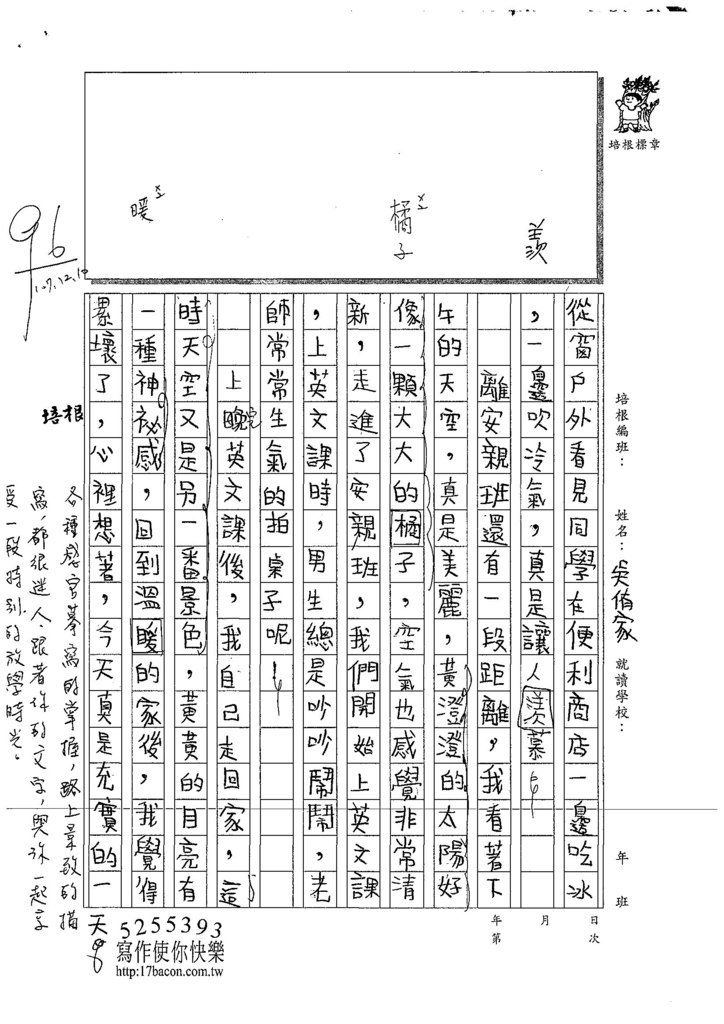 培根標章
培根編班：
姓名：吳侑家
就讀學校：
年 班
羨
橘子
暖
96
107.12.10
從窗戶外看見同學在便利商店一邊吃冰
，一邊吹冷氣，真是讓人羨慕！
離安親班還有一段距離，我看著下
午的天空，真是美麗，黃澄澄的太陽好
像一顆大大的橘子，空氣也感覺非常清
新，走進了安親班，我們開始上英文課
，上英文課時，男生總是吵吵鬧鬧，老
師常常生氣的拍桌子呢！
上晚完英文課後，我自己走回家，這
時天空又是另一番景色，黃黃的月亮有
一種神祕感，回到溫暖的家後，我覺得
累壞了，心裡想著，今天真是充實的一
天。
日 月 年
次 第
培根
各種感官摹寫的掌握，路上景致的描
寫都很迷人，跟著你的文字，與你一起享
受一段特別的放學時光。
5255393
寫作使你快樂
http:17bacon.com.tw